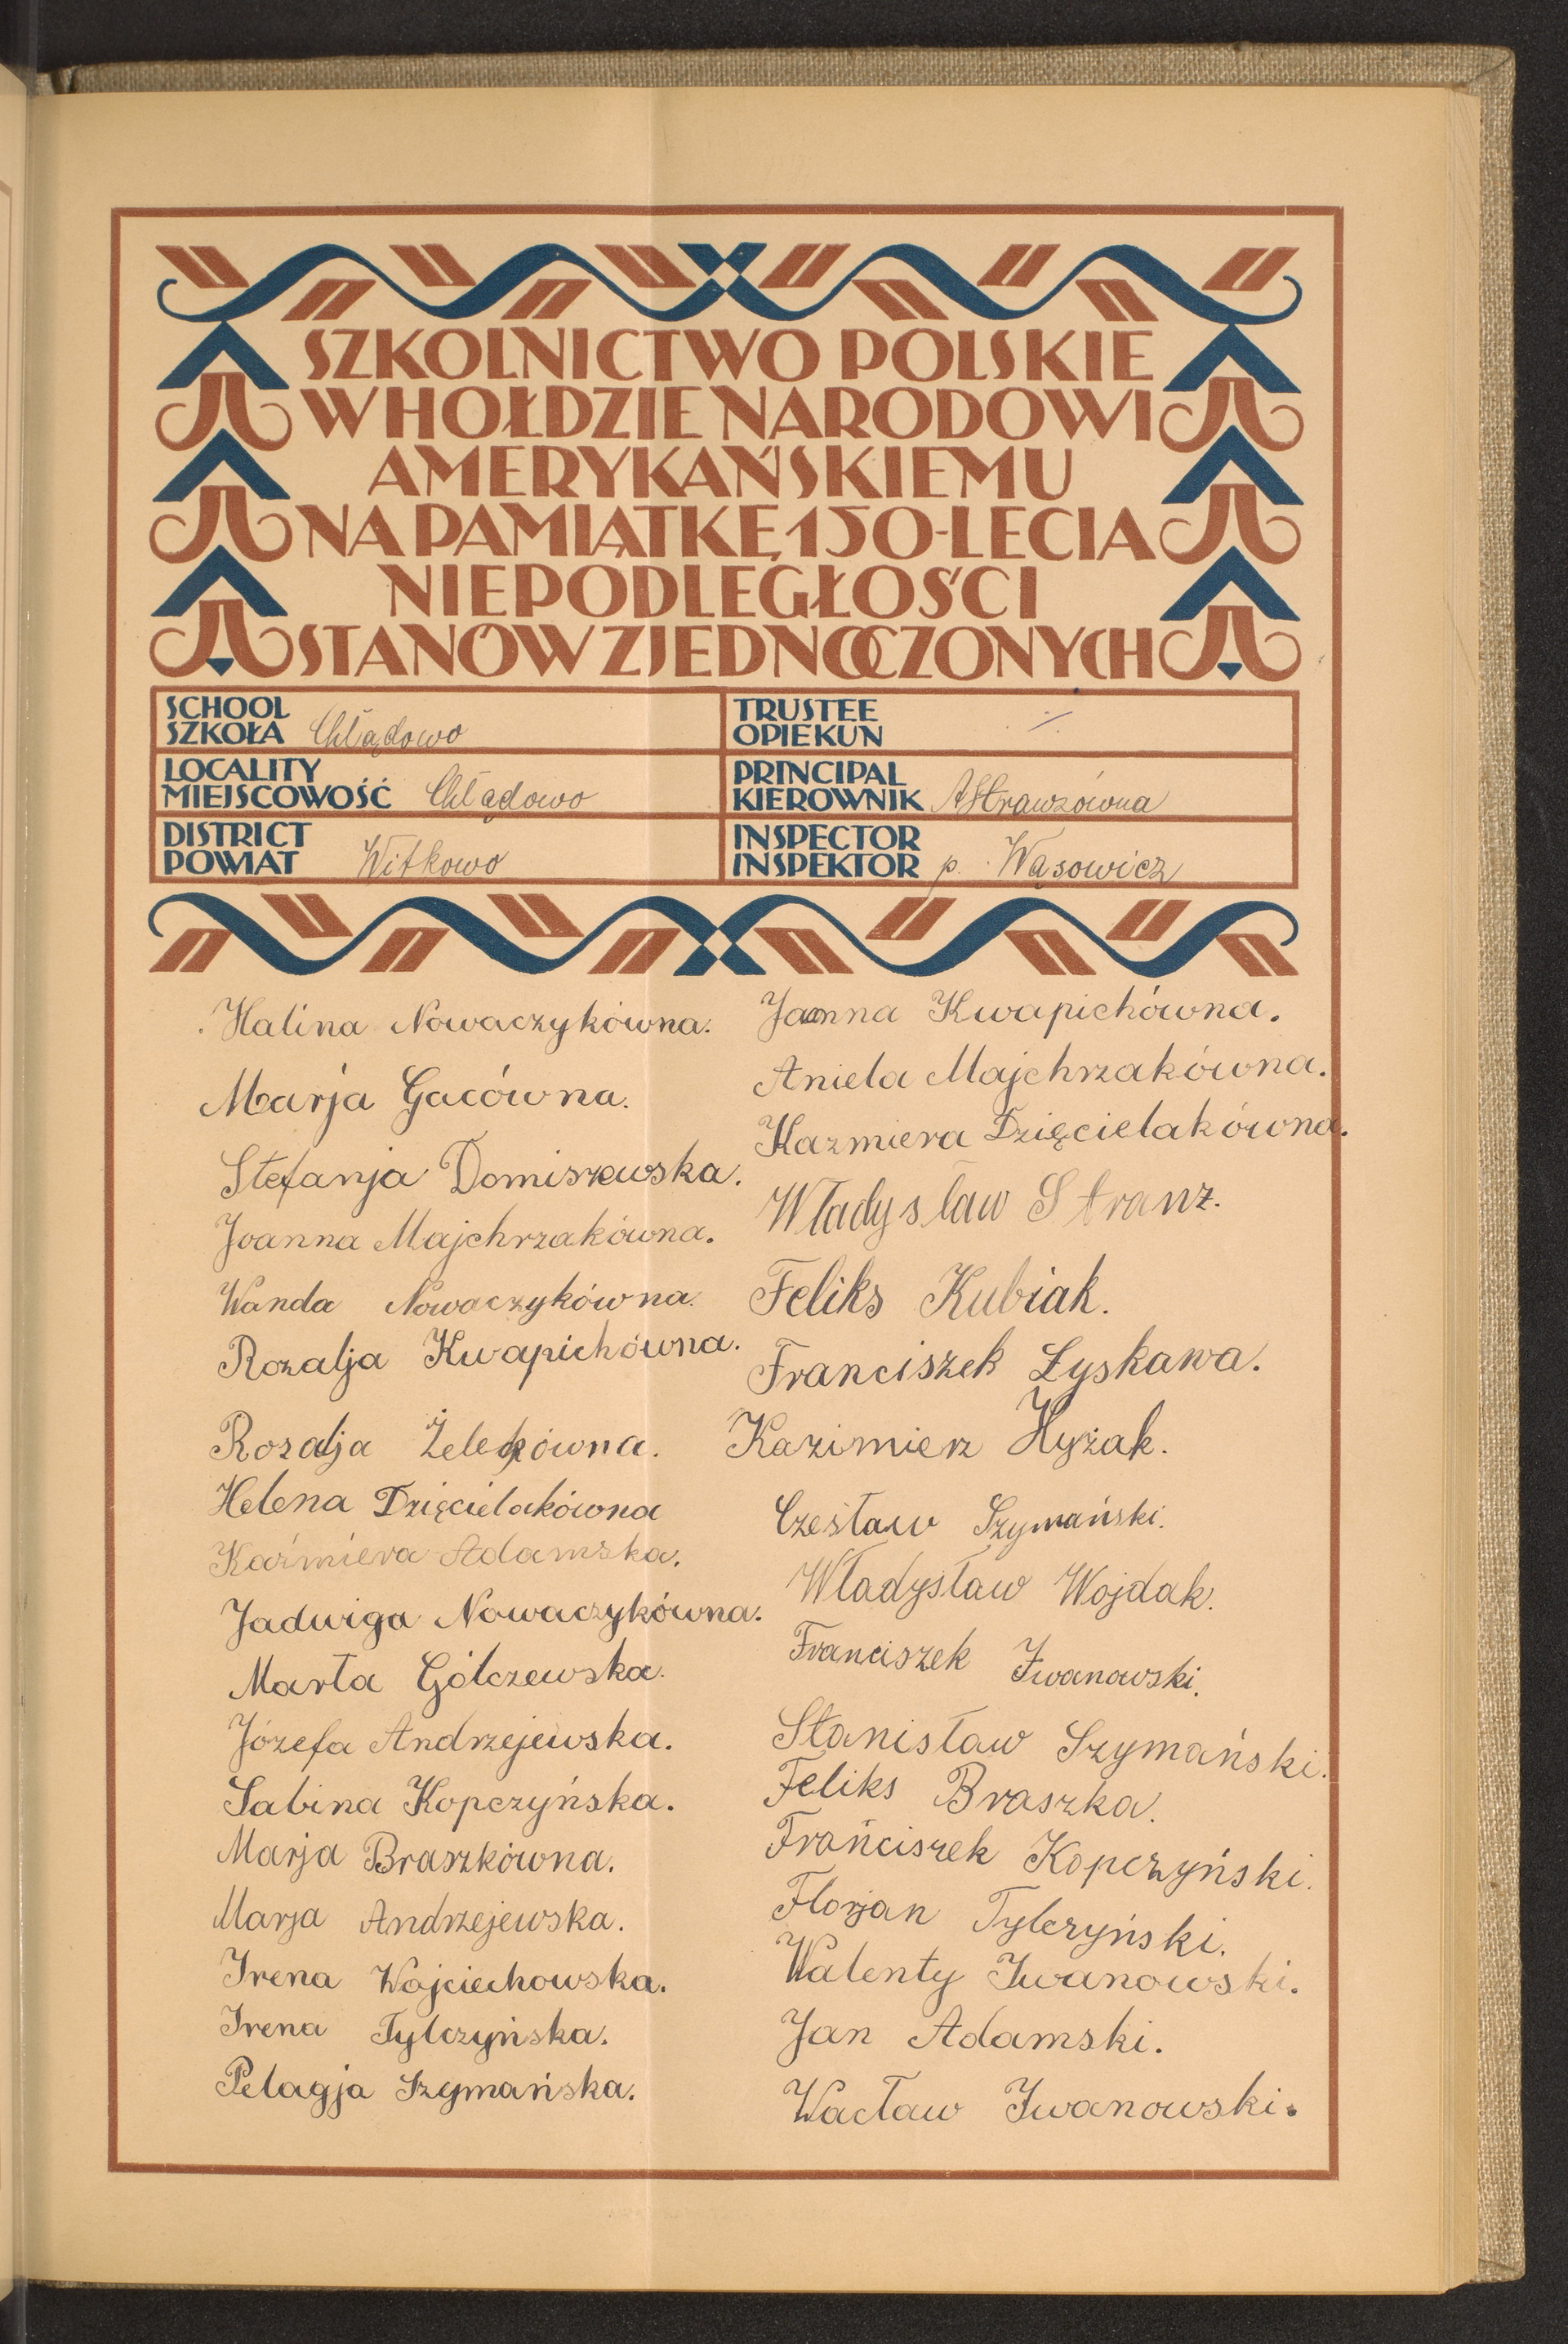 SZKOLNICTWO POLSKIE
W HOŁDZIE NARODOWI
AMERYKAŃSKIEMU
NA PAMIĄTKĘ 150-LECIA
NIEPODLEGŁOŚCI
STANÓW ZJEDNOCZONYCH
SCHOOL
SZKOŁA Chłądowo
LOCALITY
MIEJSCOWOŚĆ Chłądowo
DISTRICT
POWIAT Witkowo
TRUSTEE
OPIEKUN
PRINCIPAL
KIEROWNIK
INSPECTOR
INSPEKTOR p. Wąsowicz
Halina Nowaczykówna.
Marja Gacówna.
Stefanja Domiszewska.
Joanna Majchrzakówna.
Wanda Nowaczykówna.
Rozalja Kwapichówna.
Rozalja Żelekówna.
Helena Dzięcielakówna
Kaźmiera Adamska.
Jadwiga Nowaczykówna.
Marta Gólczewska.
Józefa Andrzejewska.
Sabina Kopczyńska.
Marja Braszkówna.
Marja Andrzejewska.
Irena Wojciechowska.
Irena Tylczyńska.
Pelagja Szymańska.
Joanna Kwapichówna.
Aniela Majchrzakówna.
Kazmiera Dzięcielakówna.
Władysław Stranz.
Feliks Kubiak.
Franciszek Łyskawa.
Kazimierz Hyżak.
Czesław Szymański.
Władysław Wojdak.
Franciszek Iwanowski.
Stanisław Szymański.
Feliks Braszka.
Franciszek Kopczyński.
Florjan Tylczyński.
Walenty Iwanowski.
Jan Adamski.
Wacław Iwanowski.